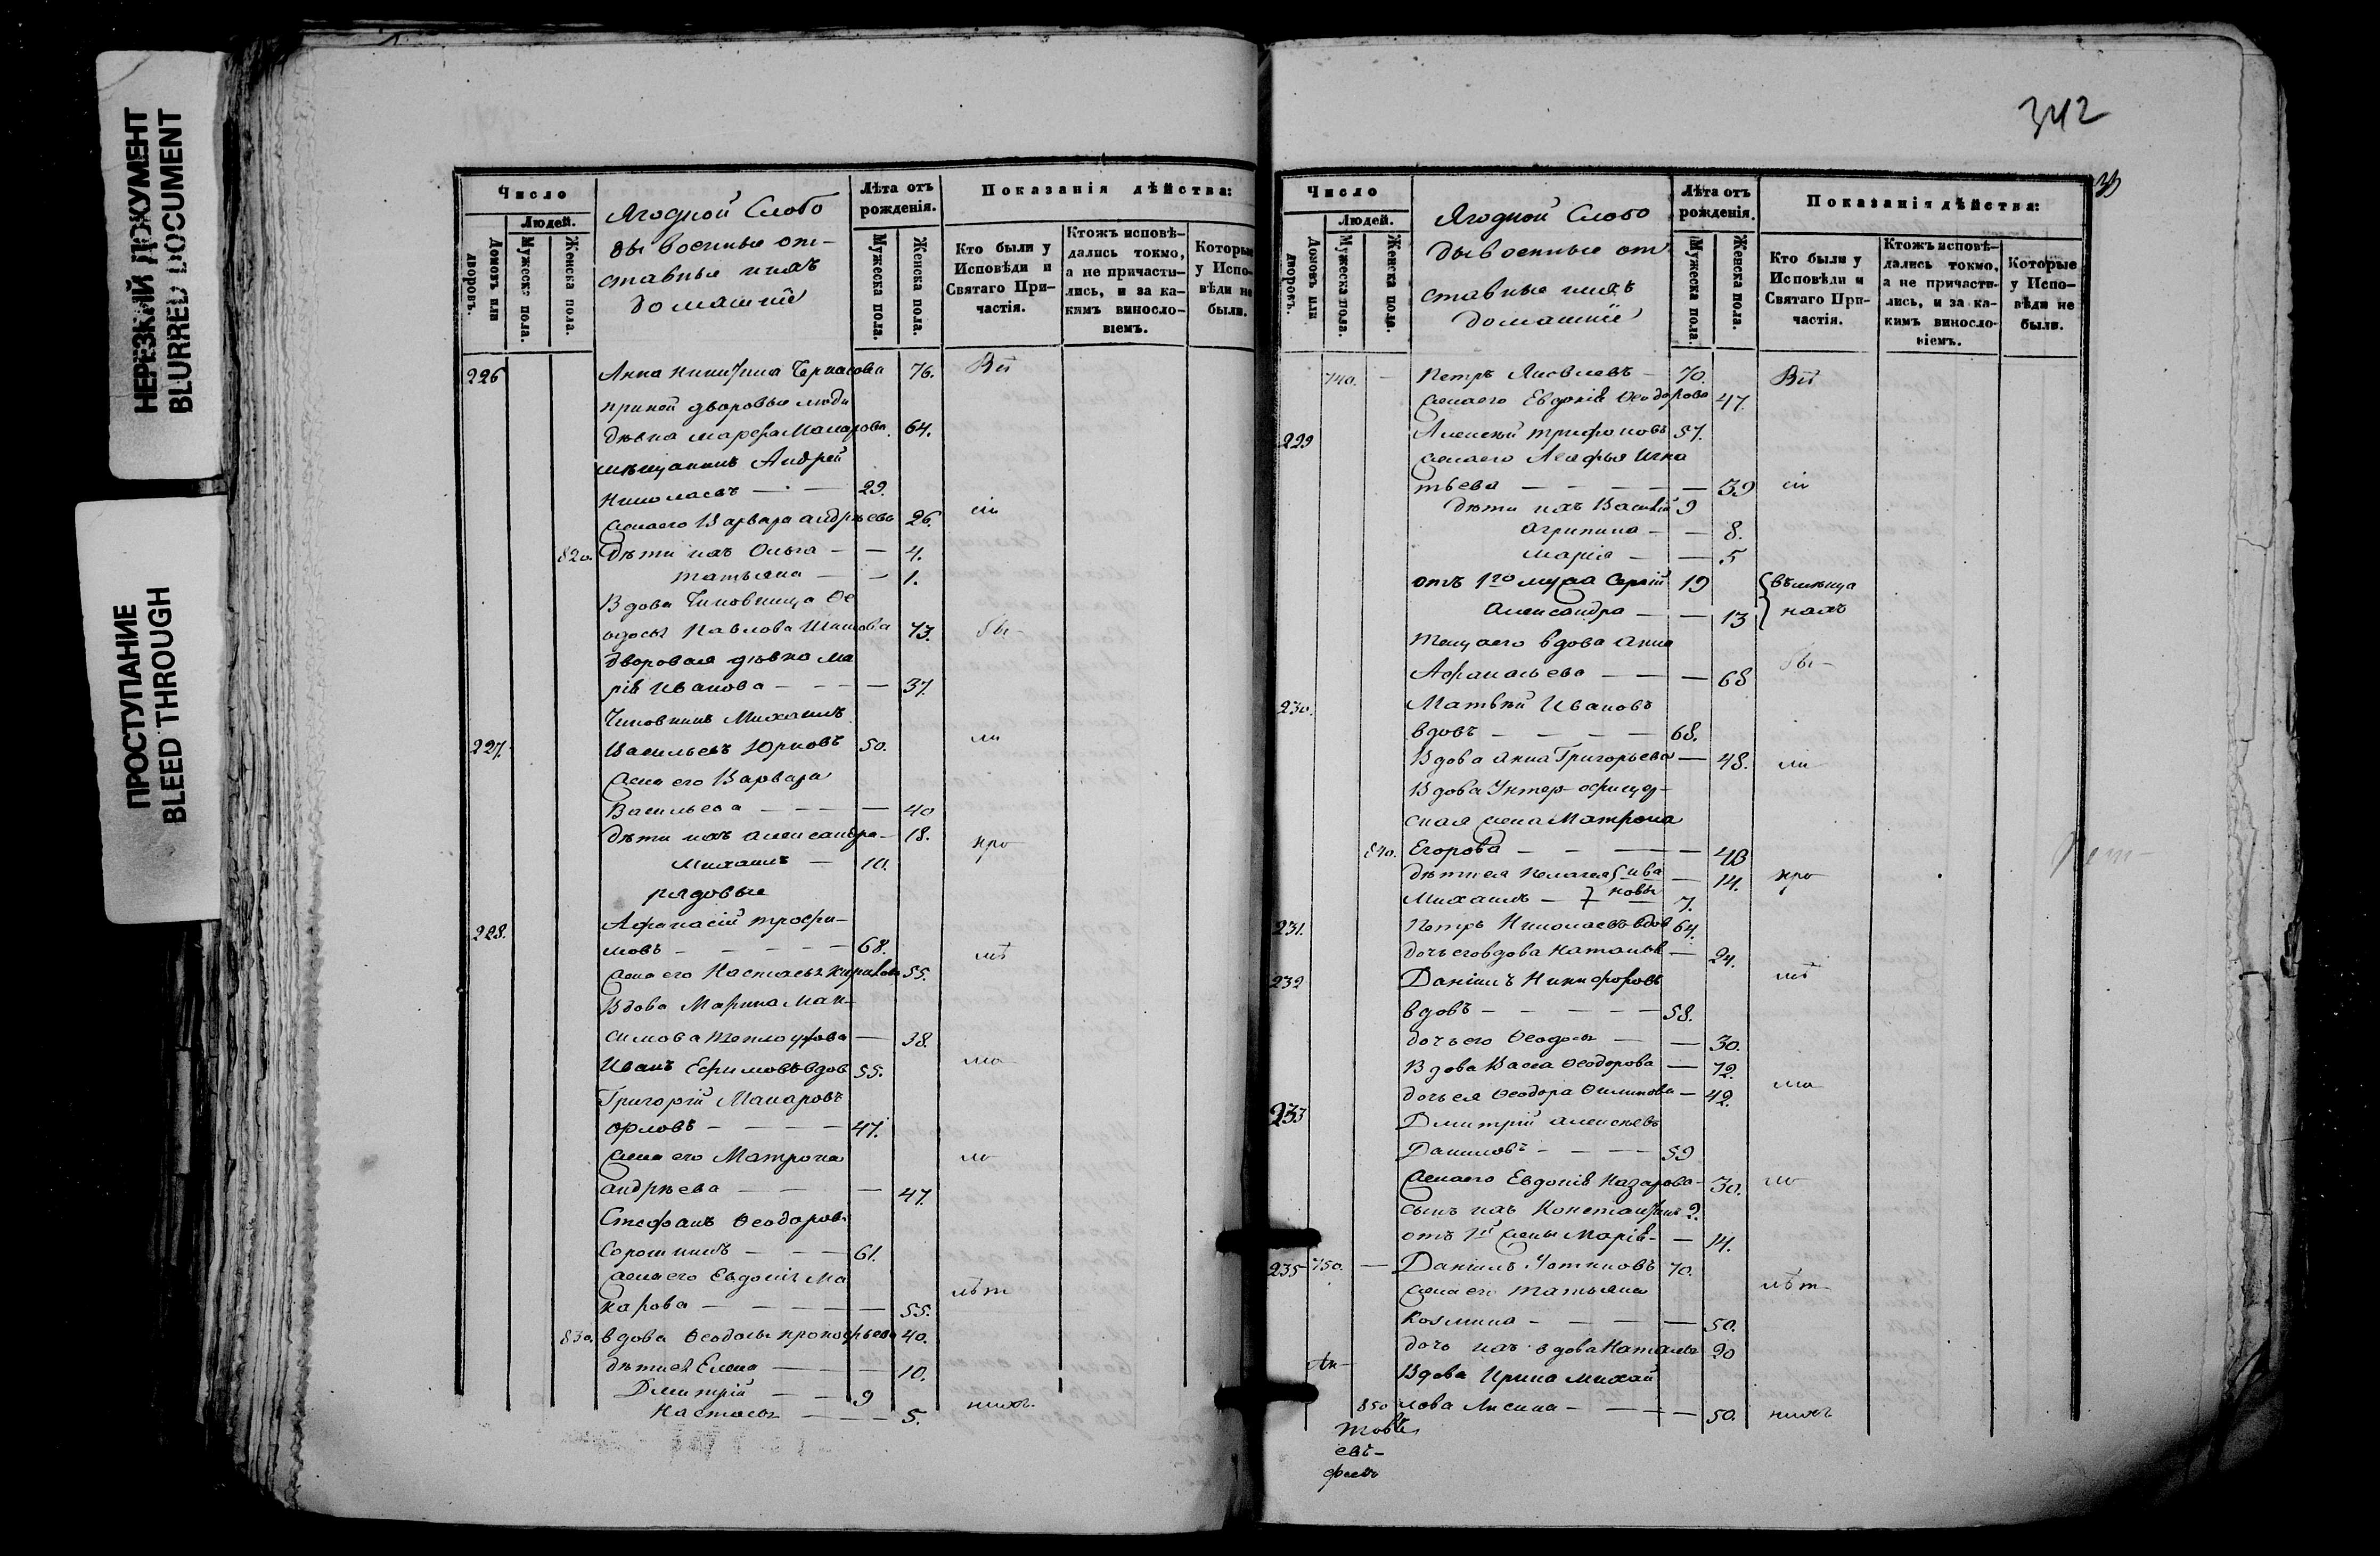 НЕРЕЗКИЙ ДОКУМЕНТ
BLURRED DOCUMENT
ПРОСТУПАНИЕ
BLEED THROUGH
Число
Людей.
Домовъ или дворовъ.
Мужеска пола.
Женска пола.
Ягодной Слобо
ды военные от-
ставные и ихъ
домашніе
Лѣта отъ рожденія.
Мужеска пола.
Женска пола.
Показанія дѣйства:
Кто были у Исповѣди и Святаго При-частія.
Ктожъ исповѣ-дались токмо, а не причасти-лись, и за ка-кимъ винословіемъ.
Которые у Испо-вѣди не были.
226 Анна Никитина Черкасова 76. Всѣ
при ней дворовые люди
дѣвка Марфа Макарова 64.
мѣщанинъ Андрей
Николаевъ — 29.
жена его Варвара Андрѣева 26. сіи
820. дѣти ихъ Ольга — — 4.
Татьяна — — 1.
Вдова Чиновница Ѳе
одосья Павлова 73. бы-
дворовая дѣвка Ма
рія Иванова — — — 37.
Чиновникъ Михаилъ
227. Васильевъ Юрковъ 50. ли
жена его Варвара
Васильева — — — 40
дѣти ихъ Александра — 18. при
Михаилъ — 10.
рядовые
228. Афанасій Трофи-
мовъ — — — 68. лѣ
жена его Настасья 55.
Вдова Марина Мак-
симова — 38.
Иванъ Ефимовъ вдов 55.
Григорій Макаровъ
Орловъ — — — 47.
жена его Матрона
Андрѣева — — — 47.
Стефанъ Ѳеодоровъ
Сорокинъ — — 61.
жена его Евдокія Ма
карова — — — — 55. лѣт
830. вдова Ѳеодосья Прокофьева 40.
дѣти ея Елена — — 10.
Дмитрій — — 9
Настасья — — 5. нихъ
342
Число
Людей.
Домовъ или дворовъ.
Мужеска пола.
Женска пола.
Ягодной Слобо
ды военные от
ставные и ихъ
домашніе
Лѣта отъ рожденія.
Мужеска пола.
Женска пола.
Показанія дѣйства:
Кто были у Исповѣди и Святаго При-частія.
Ктожъ исповѣ-дались токмо, а не причасти-лись, и за ка-кимъ винословіемъ.
Которые у Испо-вѣди не были.
740. — Петръ Яковлевъ — 70. Всѣ
жена его Евдокія Ѳеодорова 47.
229 Алексѣй Трифоновъ 57.
жена его Агафья Игна
тьева — — — — 39 сіи
дѣти ихъ Василій 9
Агрипина — — 8.
Марія — — 5
отъ 1го мужа Сергій 19
Александра — — 13
теща его вдова Анна
Афанасьева — — — 68 бы-
230. Матвѣй Ивановъ
вдовъ — — — — 68.
Вдова Анна Григорьева — 48. ли
Вдова Унтер-офицер-
ская жена Матрона
840. Егорова — — — — 43
дѣти ея Пелагея Ива — 14. при
Михаилъ — новы 7.
231. Петръ Николаевъ вдов 64.
дочь его вдова Наталья — 24.
232 Даніилъ Никифоровъ
вдовъ — — — — 58.
дочь его Ѳеодосья — — 30.
Вдова Васса Ѳеодорова — 72.
дочь ея Ѳеодора Филипова — 42.
233 Дмитрій Алексѣевъ
Даниловъ — — — 59
жена его Евдокія Назарова — 30.
сынъ ихъ Константинъ 2.
отъ 1й жены Марія — — 14.
235 750. — Даніилъ 70.
жена его Татьяна лѣт-
Козмина — — — — 50.
дочь ихъ вдова Наталья 20
Вдова Ирина Михай
850 лова Лисина — — — 50. нихъ